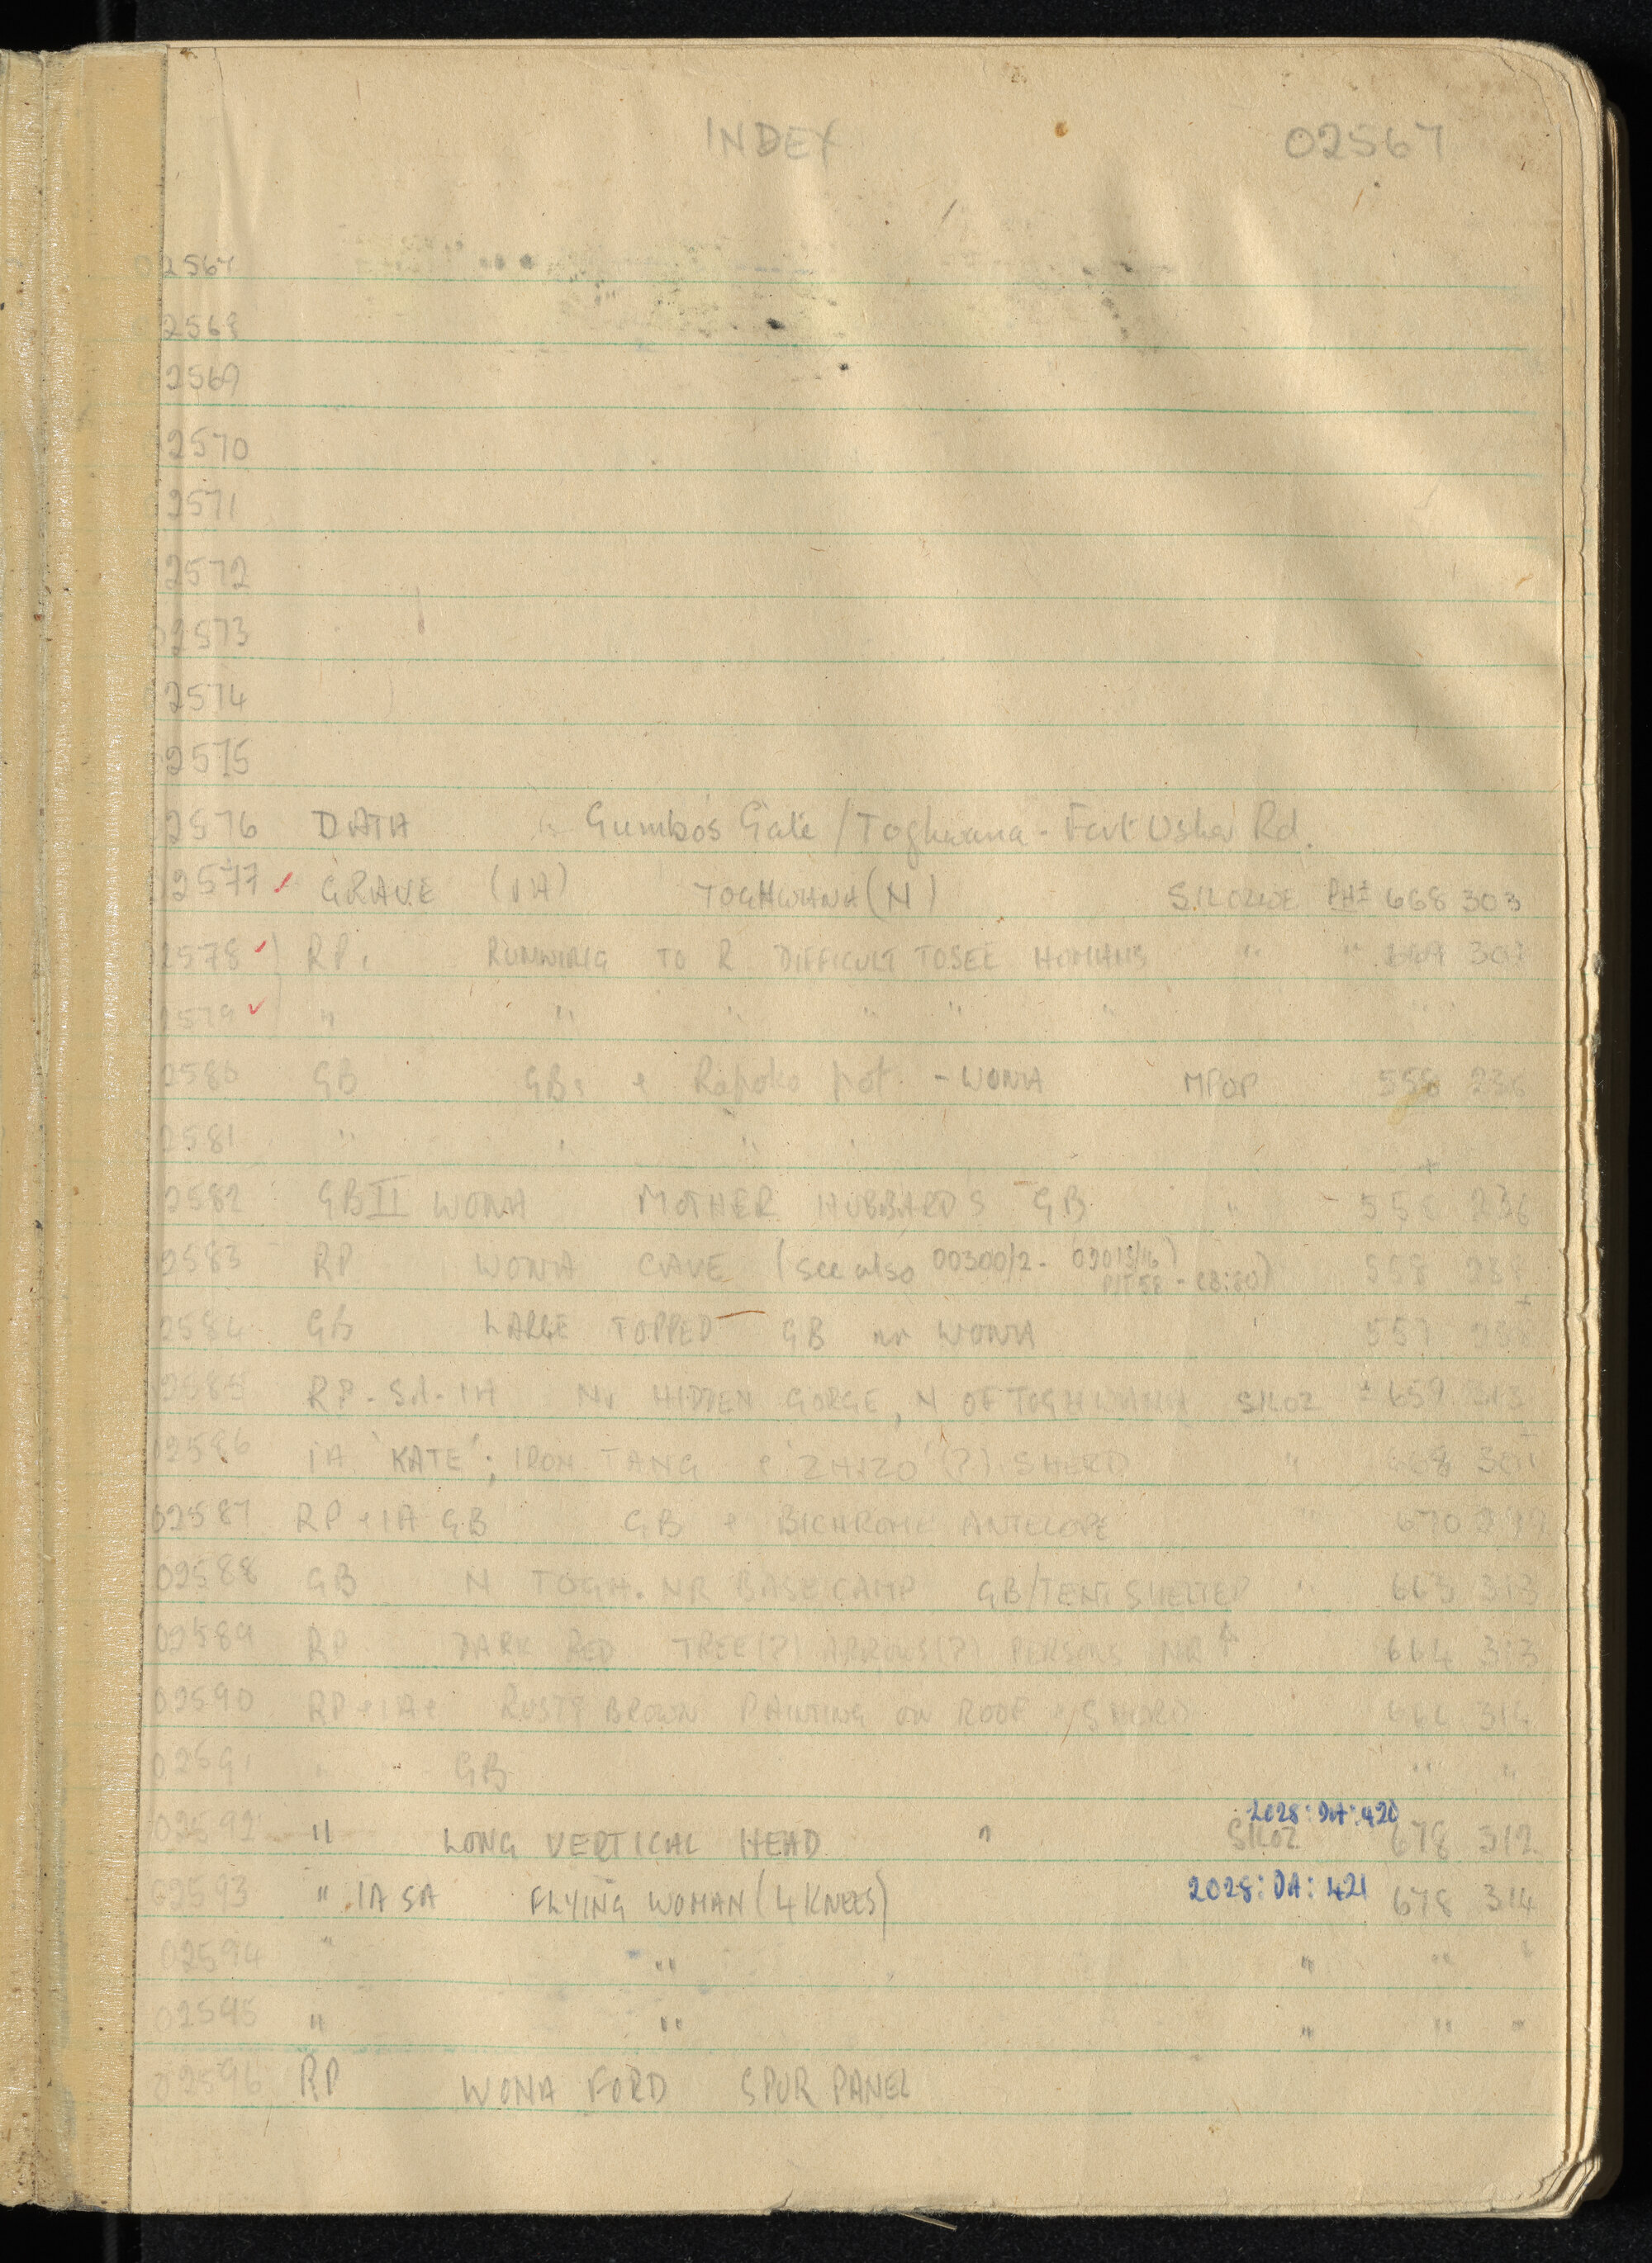 INDEX 02567
02567
02568
2569
2570
2571
2572
02573
2574
2575
2576 DATA Gumbo's Gate / Toghwana - Fort Usher Rd.
2577 ✓ GRAVE (IA) TOGHWANA (N) SILOZWE 668 303
2578 ✓ RP. RUNNING TO R DIFFICULT TO SEE HUMANS " "
2579 ✓ " " " " " "
2580 GB GBs Rapoko pot - WONA MPOP 558 236
2581 " " "
2582 GB II WONA MOTHER HUBBARD'S GB " 558 236
2583 RP WONA CAVE (see also 00300/2 -
2584 GB LARGE TOPPED GB nr WONA 557
2585 RP - SA - IA Nr HIDDEN GORGE, N OF TOGHWANA SILOZ ± 659 313
02586 IA 'KATE'; IRON TANG 'ZHIZO' (?) SHERD " 668
02587 RP IA GB GB BICHROME ANTELOPE " 670
02588 GB N TOGH. NR BASE CAMP GB/TENT SHELTER " 663 313
02589 RP DARK RED TREE (?) ARROWS (?) PERSONS NR 664 313
02590 RP IA RUSTY BROWN PAINTING ON ROOF 314
02591 GB " "
2028:DA:420
02592 " LONG VERTICAL HEAD " SILOZ 678 312
02593 " IA SA FLYING WOMAN (4 KNEES) 2028:DA:421 678 314
02594 " " " " "
02595 " " " " "
02596 RP WONA FORD SPUR PANEL